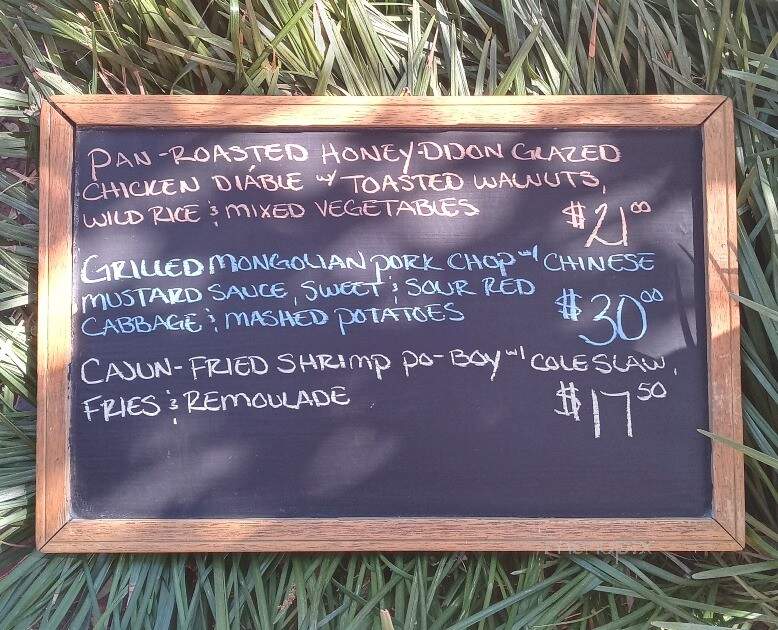 PAN-ROASTED HONEY-DIJON GLAZED
CHICKEN DIÁBLE w/ TOASTED WALNUTS,
WILD RICE & MIXED VEGETABLES $21.00
GRILLED MONGOLIAN PORK CHOP w/ CHINESE
MUSTARD SAUCE, SWEET & SOUR RED
CABBAGE & MASHED POTATOES $30.00
CAJUN-FRIED SHRIMP PO-BOY w/ COLE SLAW,
FRIES & REMOULADE $17.50